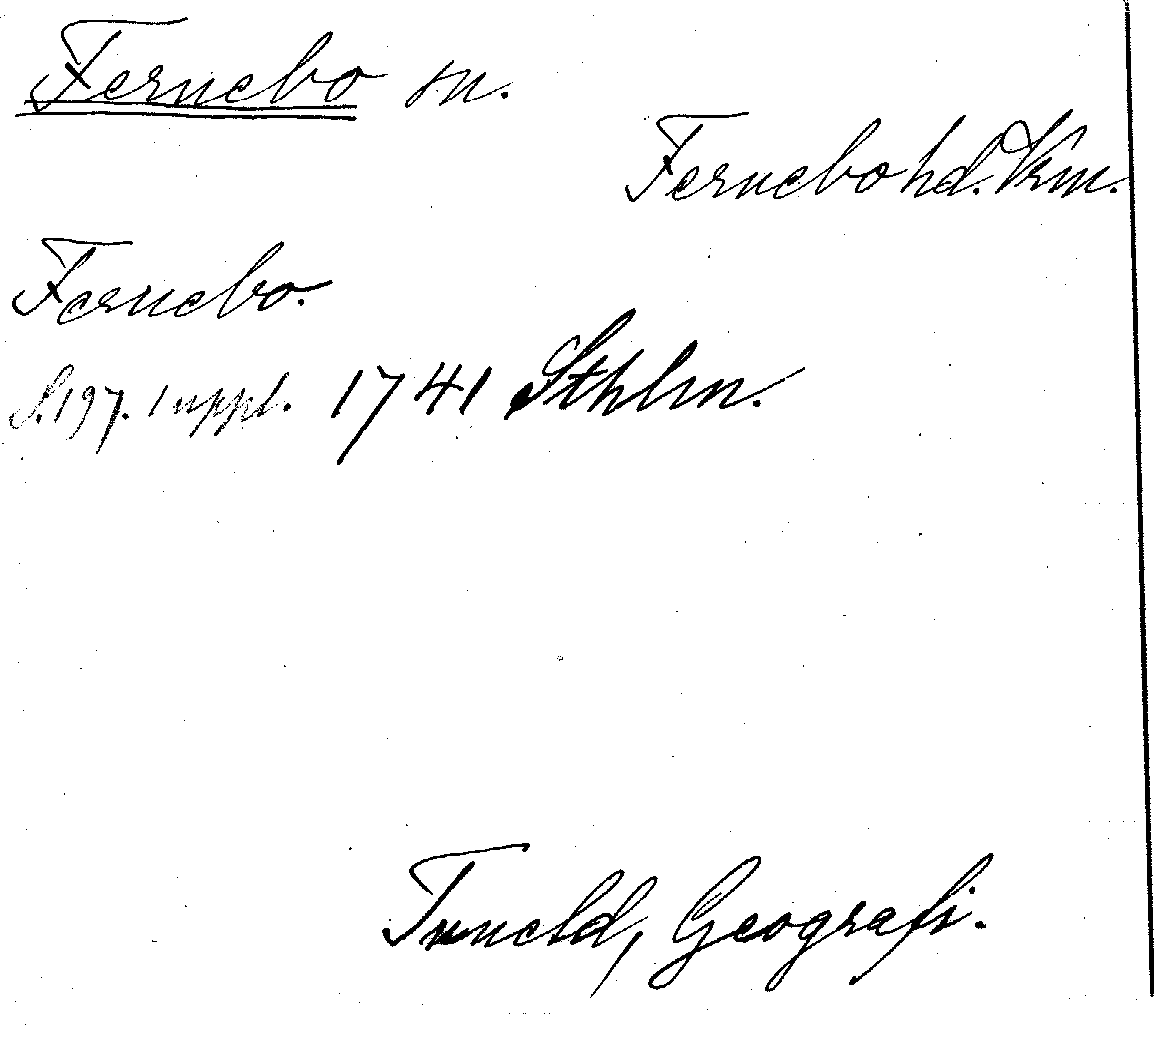 Fernebo sn.
Fernebo hd. Vrm.
Fernebo.
S. 197. 1 uppl. 1741 Sthlm.
Tuneld, Geografi.